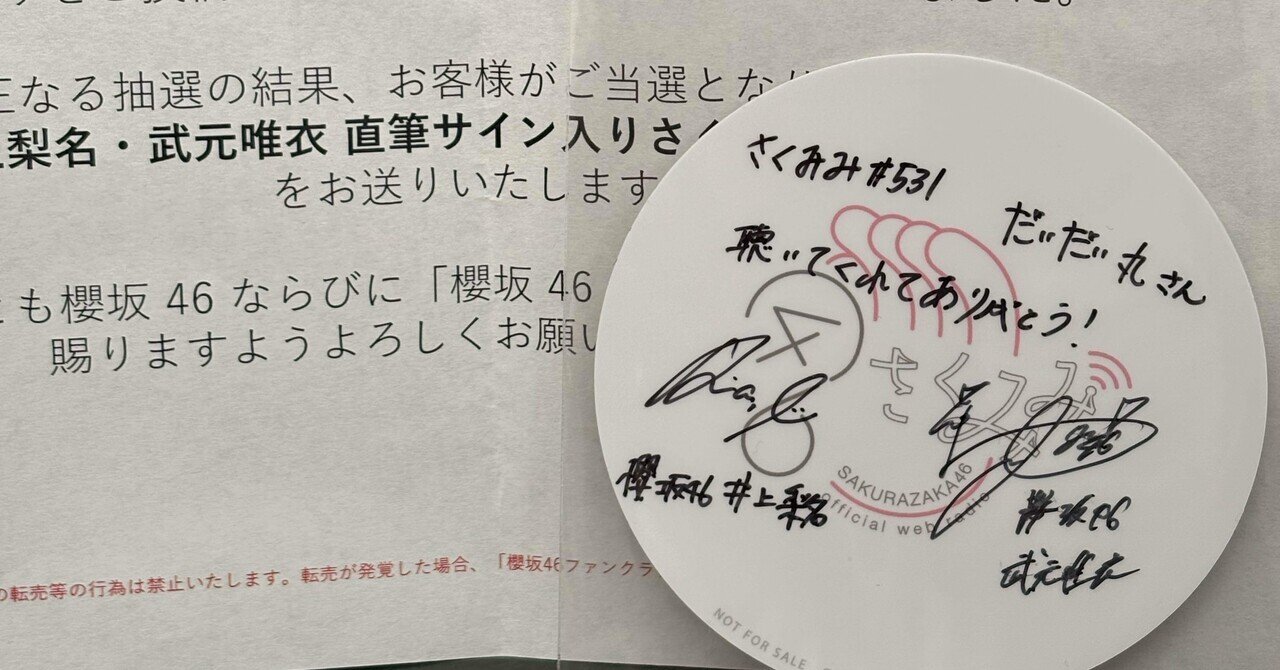 正なる抽選の結果、お客様がご当選とな
梨名・武元唯衣 直筆サイン入りさく
をお送りいたします
とも櫻坂 46 ならびに「櫻坂 46
賜りますようよろしくお願い
の転売等の行為は禁止いたします。転売が発覚した場合、「櫻坂46ファンクラ
さくみみ#531
だいだい丸さん
聴いてくれてありがとう!
さくみみ
SAKURAZAKA46
official web radio
櫻坂46 井上梨名
櫻坂46
武元唯衣
NOT FOR SALE